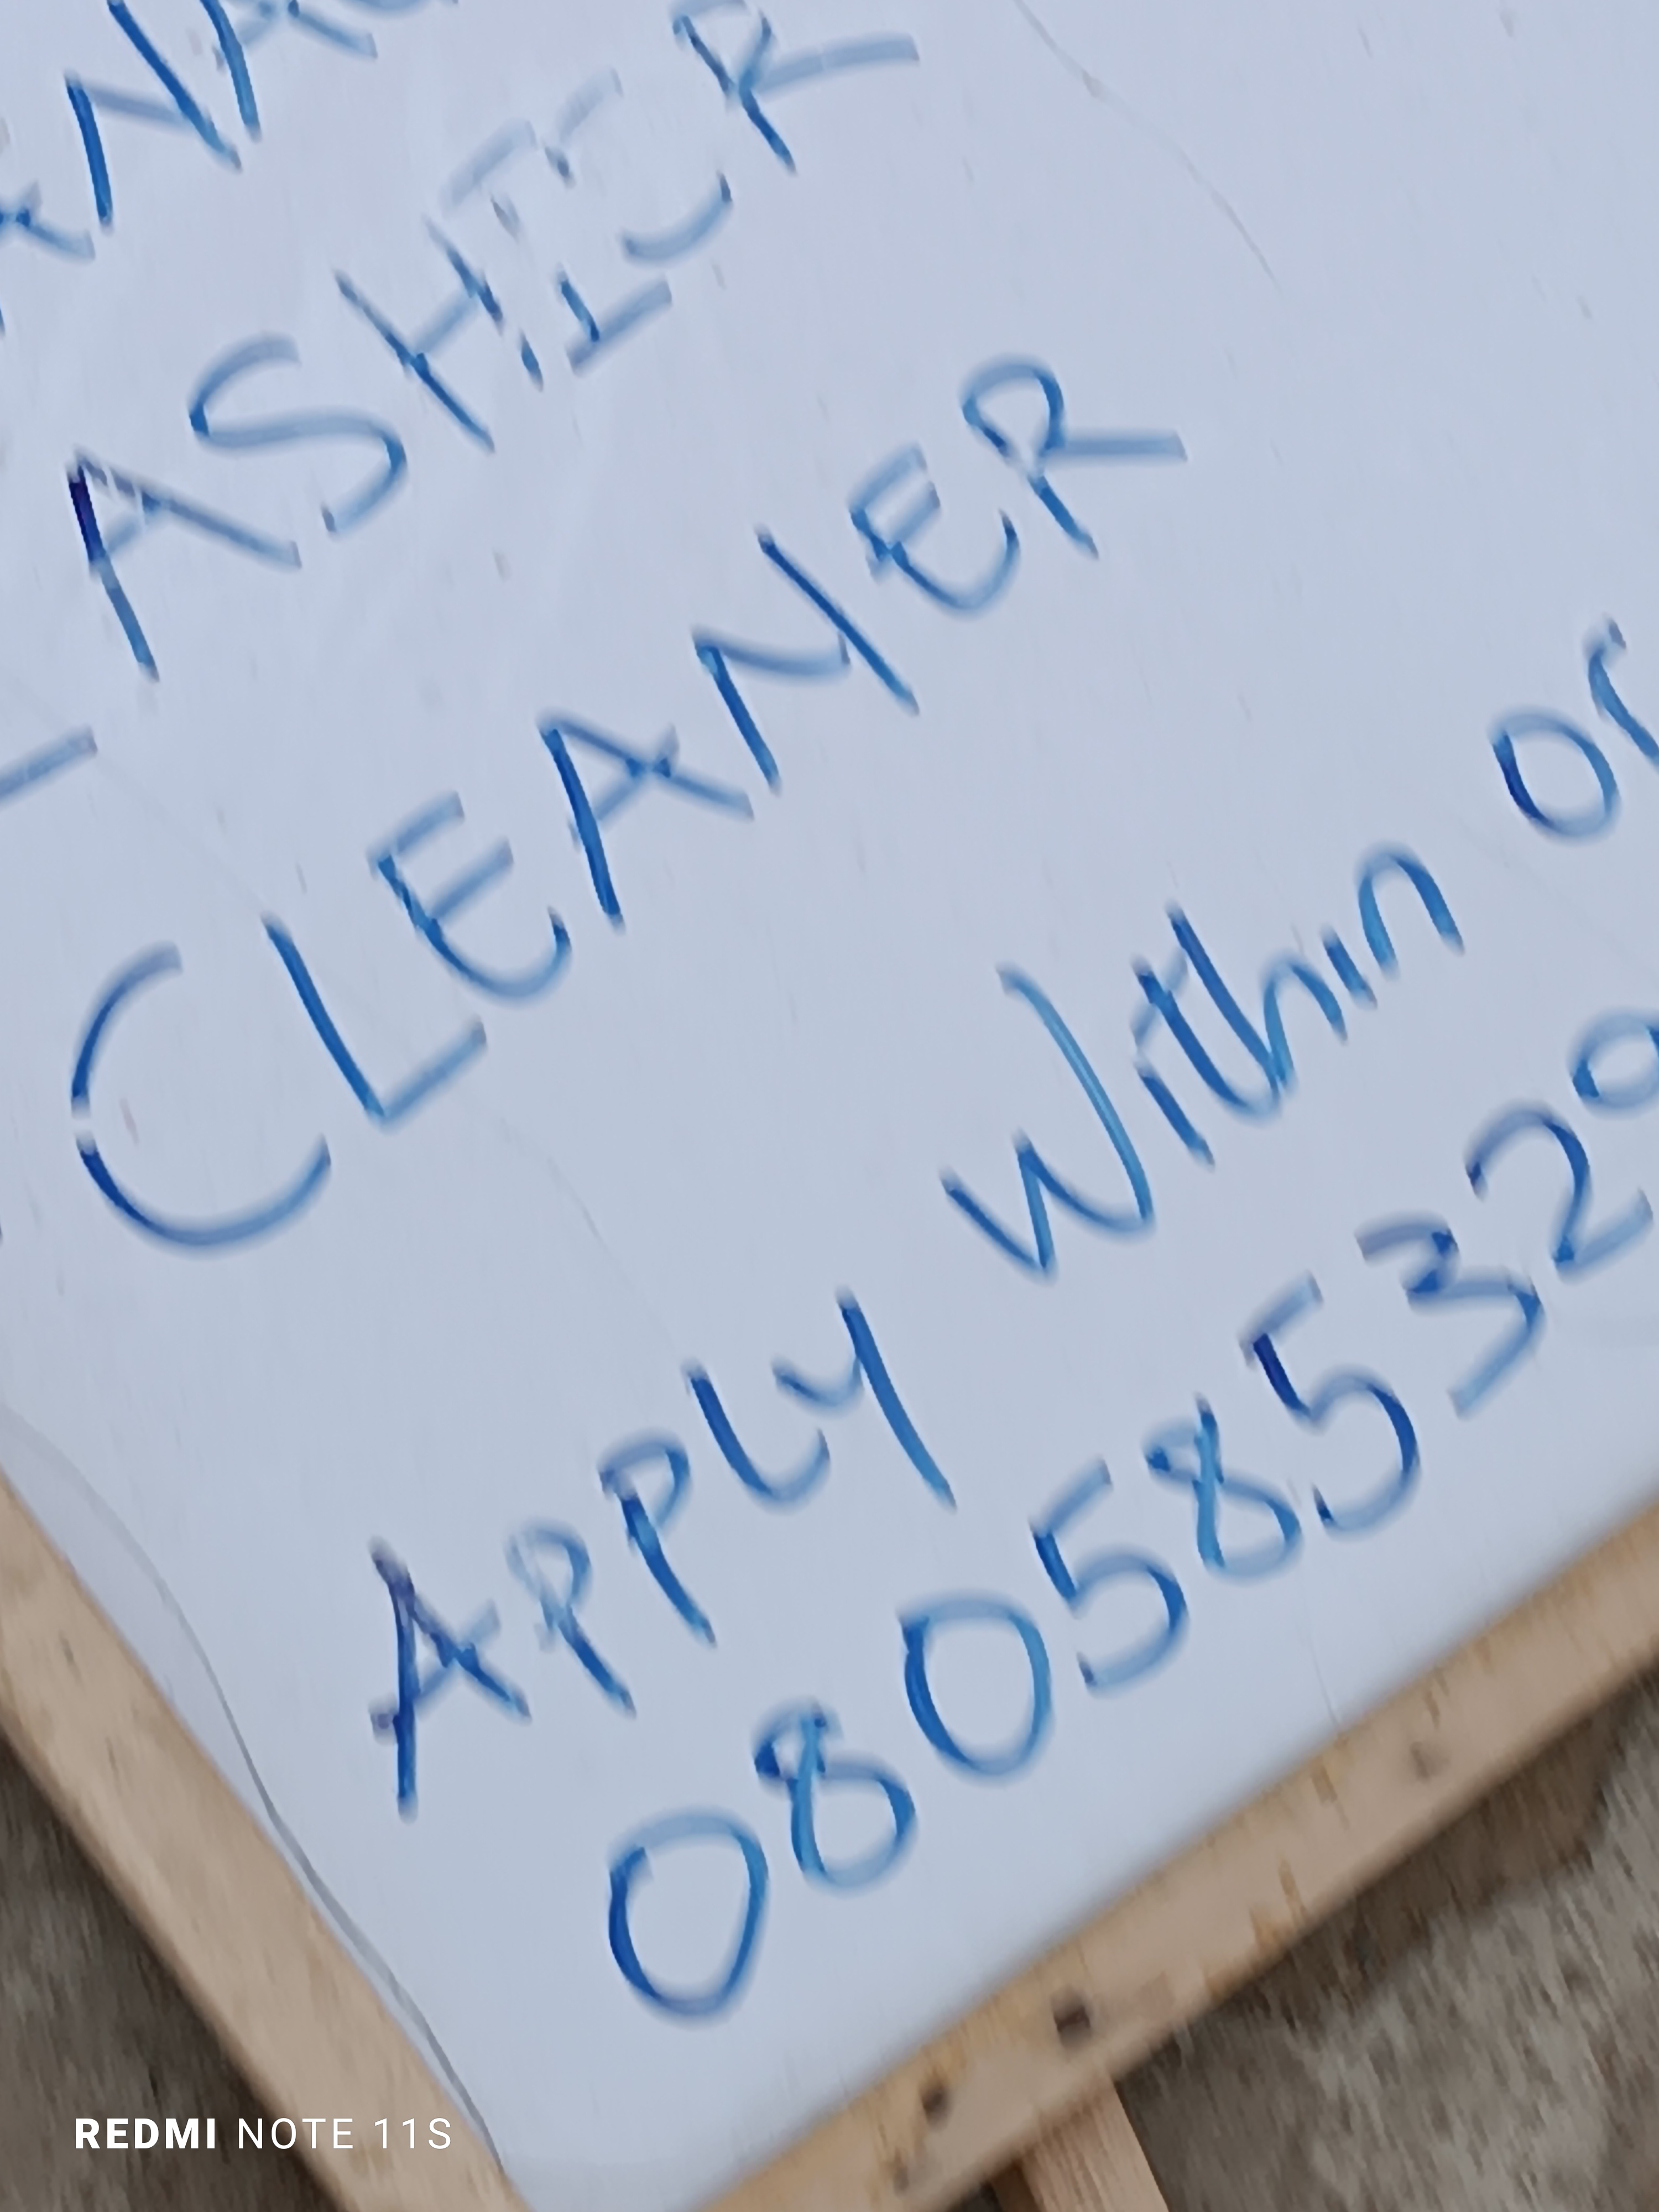 ASHIER
CLEANER
APPLY Within or
080585329
REDMI NOTE 11S